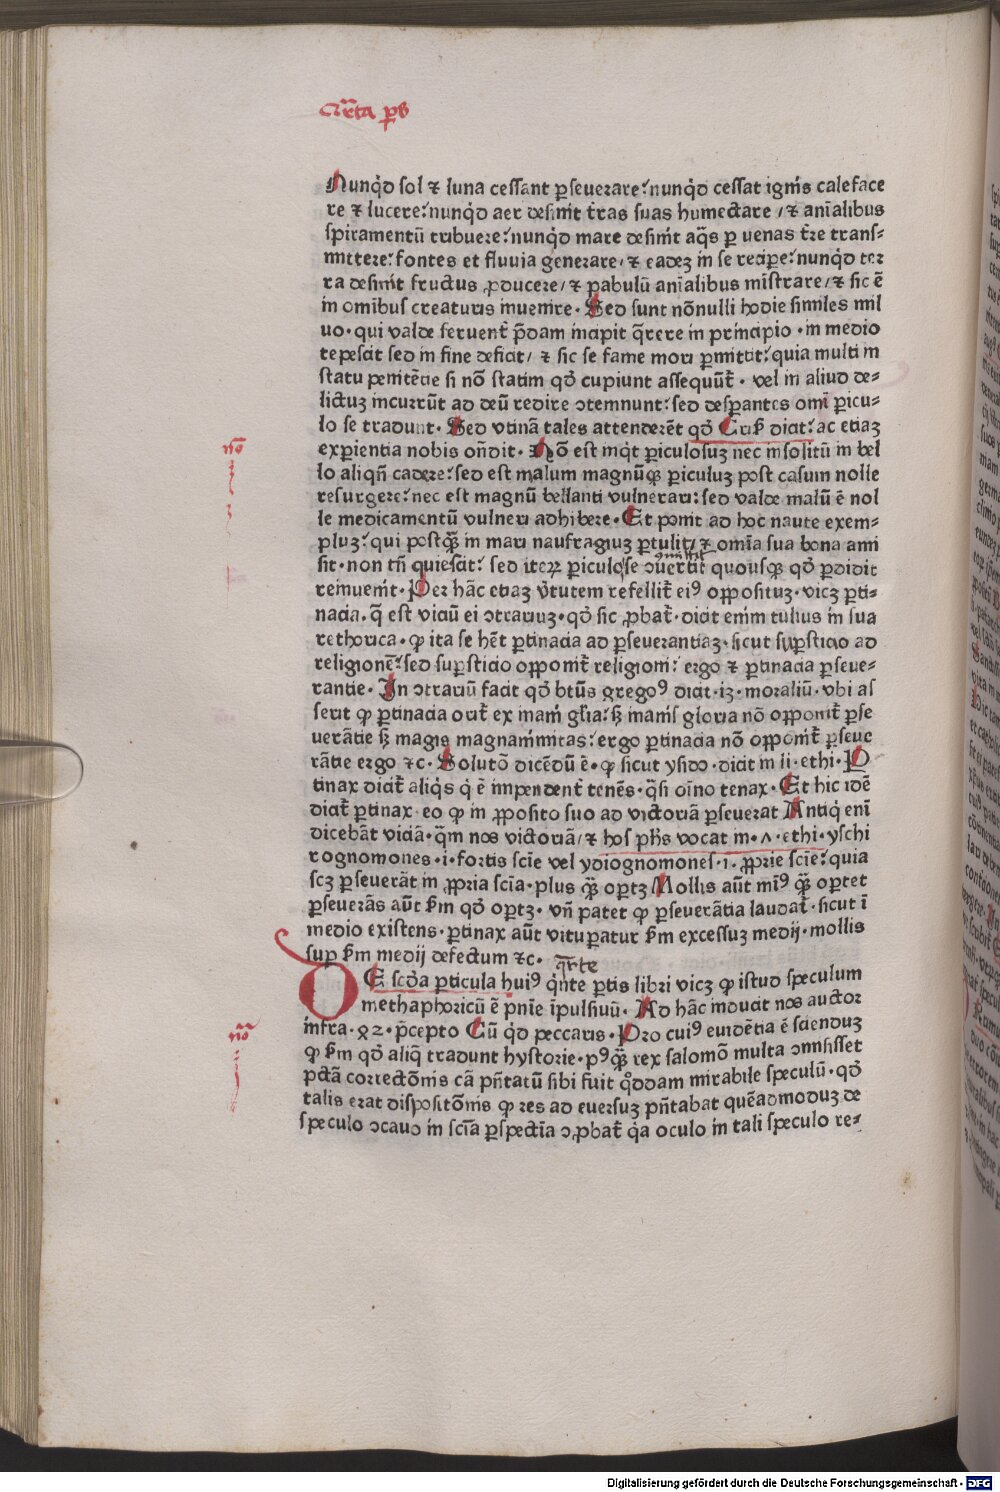 Nunq̄d sol ⁊ luna cessant ꝑseuerare? nunq̄d cessat ignis caleface
re ⁊ lucere? nunq̄d aer desinit t̄ras suas humectare / ⁊ aīalibus
spiramentū tribuere? nunq̄d mare desinit aq̄s ꝑ uenas t̄re trans⸗
mittere? fontes et fluuia generare / ⁊ eadeʒ in se reciꝑe? nunq̄d ter
ra desinit fructus ꝓducere / ⁊ pabulū aīalibus mīstrare / ⁊ sic ē
in omibus creaturis inuenire · Sed sunt nōnulli hodie similes mil
uo · qui valde feruent̄ p̄dam incipit q̄rere in principio · in medio
tepescit sed in fine deficit / ⁊ sic se fame mori ꝑmittit? quia multi in
statu penitētie si nō statim qd̄ cupiunt assequūt̄ · vel in aliud de⸗
lictuʒ incurrūt ad deū redire ↄtemnunt: sed desꝑantes omī ꝑicu⸗
lo se tradunt · Sed vtinā tales attenderēt qd̄ Cris̄ dicit? ac etiaʒ
exꝑientia nobis on̄dit · Nō est inq̇t ꝑiculosuʒ nec insolitū in bel
lo aliqn̄ cadere? sed est malum magnūqʒ ꝑiculuʒ post casum nolle
resurgere? nec est magnū bellanti vulnerari: sed valde malū ē nol
le medicamentū vulneri adhibere · Et ponit ad hoc naute exem⸗
pluʒ? qui postq̄ʒ in mari naufragiuʒ ꝑtulit / ⁊ omīa sua bona ami
sit · non tn̄ quiescit? sed iteꝝ ꝑiculo se ↄuertit quousqʒ qd̄ ꝑdidit
reinuenit · Per hāc etiaʒ v̄tutem refellit̄ eiꝰ oppositūʒ · viceʒ ꝑti⸗
nacia · q̄ est viciū ei ↄtrariuʒ · qd̄ sic ꝓbat̄ · dicit enim tulius in sua
rethorica · ꝙ ita se hēt ꝑtinacia ad ꝑseuerantiaʒ · sicut suꝑsticio ad
religionē? sed suꝑsticio opponit̄ religioni? ergo ⁊ ꝑtinacia ꝑseue⸗
rantie · In ↄtrariū facit qd̄ btūs gregoꝰ dicit · iʒ · moraliū · vbi as
serit ꝙ ꝑtinacia orit̄ ex inani gl̄ia? sʒ inanis gloria nō opponit̄ ꝑse
uerātie sʒ magis magnanimitas? ergo ꝑtinacia nō opponit̄ ꝑseue
rātie ergo ⁊c · Solutō dicēdū ē · ꝙ sicut ysido · dicit in li · ethi · P
tinax dicit̄ aliq̄s q̇ ē impendent̄ tenēs · q̄si oīno tenax · Et hic idē
dicit̄ ꝑtinax · eo ꝙ in ꝓposito suo ad victoriā ꝑseuerat Antiq̇ enī
dicebāt viciā · q̄m nos victoriā / ⁊ hos ph̄s vocat in · ʌ · ethi · yschi
rognomones · i · fortis scīe vel ydiognomones · i · ꝓprie scīe? quia
scʒ ꝑseuerāt in ꝓpria scīa · plus q̄ʒ oꝑtʒ Mollis aūt miꝰ q̄ʒ oꝑtet
ꝑseuerās aūt ẜm qd̄ oꝑtʒ · vn̄ patet ꝙ ꝑseuerātia laudat̄ · sicut ī
medio existens · ꝑtinax aūt vituꝑatur ẜm excessuʒ medij · mollis
suꝑ ẜm medij defectum ⁊c · q̄rte
DE scd̄a ꝑticula huiꝰ q̇nte ꝑtis libri viceʒ ꝙ istud speculum
methaphoricū ē pnīe īpulsiuū · Ad hāc mouit nos auctor
infra · 92 · p̄cepto Cū q̇d peccaris · Pro cuiꝰ euidētia ē sciendūʒ
ꝙ ẜm qd̄ aliq̇ tradunt hystorie · pꝰq̄ʒ rex salomō multa ↄmisisset
pctā correctōnis cā pn̄tatū sibi fuit qd̄dam mirabile speculū · qd̄
talis erat dispositōnis ꝙ res ad euersuʒ pn̄tabat quēadmoduʒ de
speculo ↄcauo in scīa ꝑspectīa ↄꝓbat̄ q̇a oculo in tali speculo re⸗
Digitalisierung gefördert durch die Deutsche Forschungsgemeinschaft · DFG